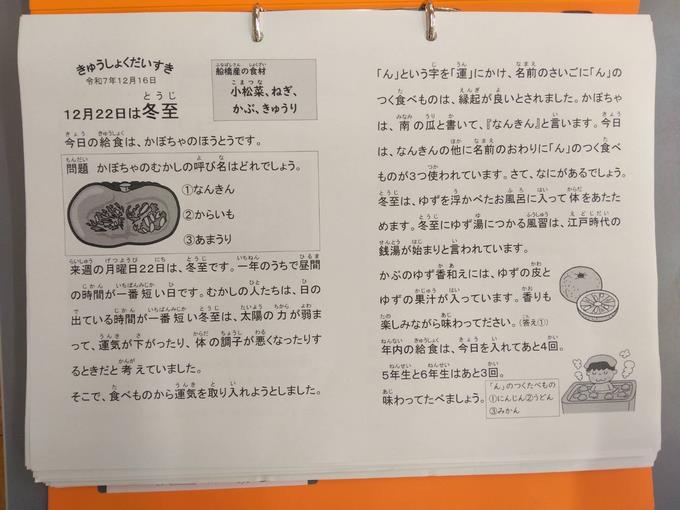 きゅうしょくだいすき
令和7年12月16日
12月22日は冬至
船橋産の食材
小松菜、ねぎ、
かぶ、きゅうり
今日の給食は、かぼちゃのほうとうです。
問題 かぼちゃのむかしの呼び名はどれでしょう。
①なんきん
②からいも
③あまうり
来週の月曜日22日は、冬至です。一年のうちで昼間
の時間が一番短い日です。むかしの人たちは、日の
出ている時間が一番短い冬至は、太陽の力が弱ま
って、運気が下がったり、体の調子が悪くなったりす
るときだと考えていました。
そこで、食べものから運気を取り入れようとしました。
「ん」という字を「運」にかけ、名前のさいごに「ん」の
つく食べものは、縁起が良いとされました。かぼちゃ
は、南の瓜と書いて、『なんきん』と言います。今日
は、なんきんの他に名前のおわりに「ん」のつく食べ
ものが3つ使われています。さて、なにがあるでしょう。
冬至は、ゆずを浮かべたお風呂に入って体をあたた
めます。冬至にゆず湯につかる風習は、江戸時代の
銭湯が始まりと言われています。
かぶのゆず香和えには、ゆずの皮と
ゆずの果汁が入っています。香りも
楽しみながら味わってださい。（答え①）
年内の給食は、今日を入れてあと4回。
5年生と6年生はあと3回。
味わってたべましょう。
「ん」のつくたべもの
①にんじん②うどん
③みかん